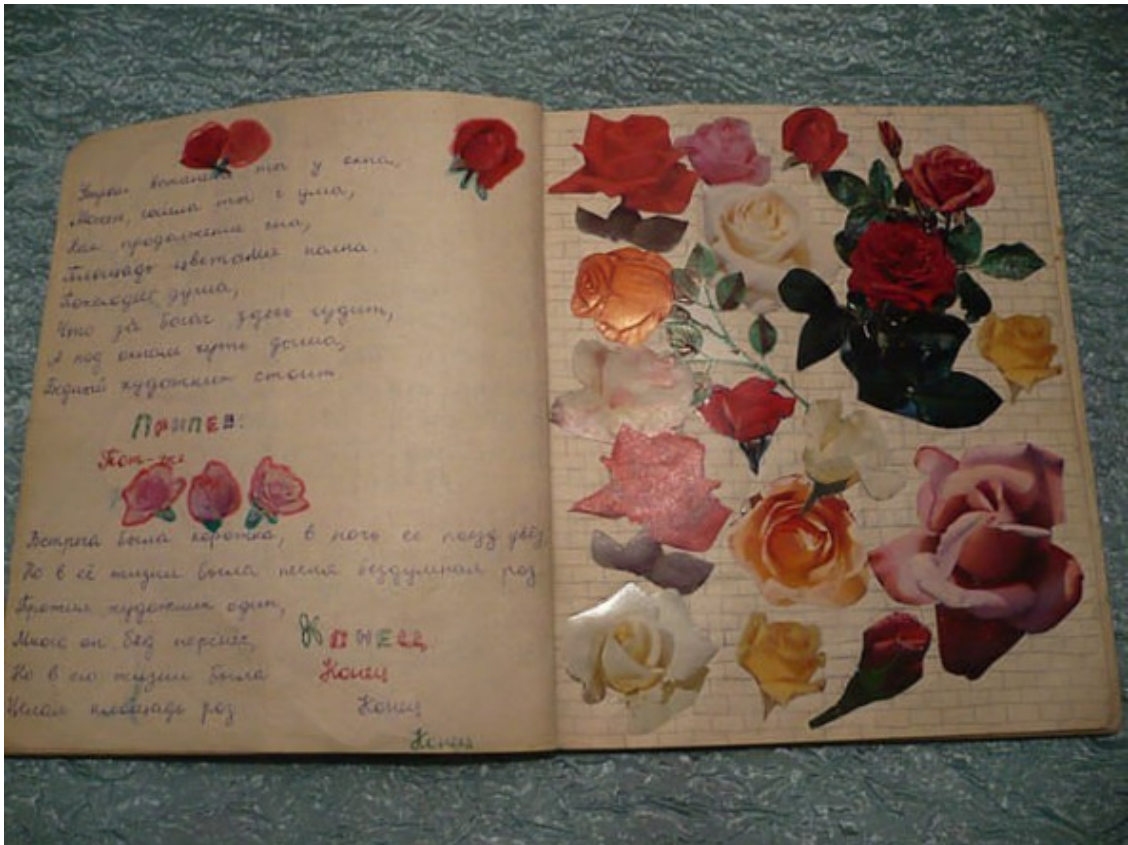 встанешь ты у окна,
Может, сошла ты с ума,
Как продолжение сна,
Площадь цветами полна.
душа,
Что за богач здесь чудит,
А под окном чуть дыша,
Бедный художник стоит.
Припев:
Встреча была коротка, в ночь её поезд увёз
Но в её жизни была песня роз
Прожил художник один,
Много он бед перенёс, Конец
Но в его жизни была Конец
Целая площадь роз Конец
Конец